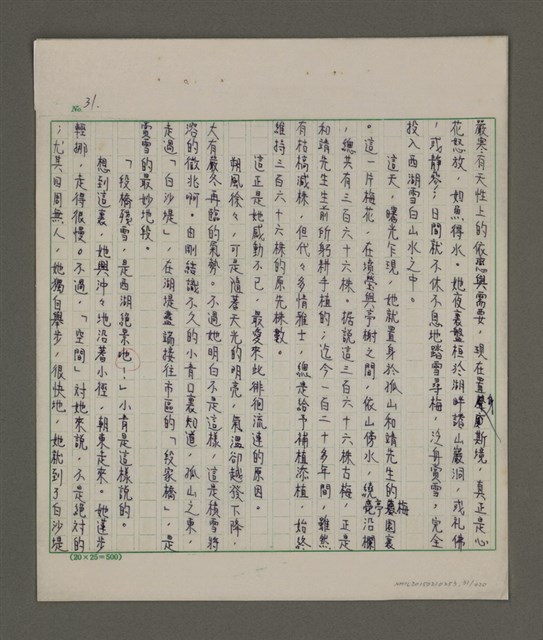 No. 31.
嚴寒有天性上的依戀與需要，現在置身斯境，真正是心
花怒放，如魚得水。她夜裏盤桓於湖畔諸山巖洞，或禮佛
，或靜參；日間就不休不息地踏雪尋梅，泛舟賞雪，完全
投入西湖雪白山水之中。
這天，曙光乍現，她就置身於孤山和靖先生的梅園裏
。這一片梅花，在墳塋與亭榭之間，依山傍水，繞亭沿欄
，總共有三百六十六株。据說這三百六十六株古梅，正是
和靖先生生前所躬耕手植的；迄今一百二十多年間，雖然
有枯槁減株，但代々多情雅士，總是給予補植添植，始終
維持三百六十六株的原先株數。
這正是她感動不已，最愛來此徘徊流連的原因。
朔風徐々，可是隨著天光的明亮，氣溫卻越發下降，
大有嚴冬再臨的氣勢。不過她明白不是這樣，這是積雪將
溶的徵兆啊。由剛結識不久的小青口裏知道，孤山之東，
走過「白沙堤」，在湖堤盡端接往市區的「段家橋」，是
賞雪的最妙地段。
「段橋殘雪，是西湖絕景吔！」小青是這樣說的。
想到這裏，她興沖々地沿著小徑，朝東走來。她蓮步
輕挪，走得很慢。不過，「空間」對她來說，不是絕對的
；尤其四周無人，她獨自舉步，很快地，她就到了白沙堤
(20×25=500)